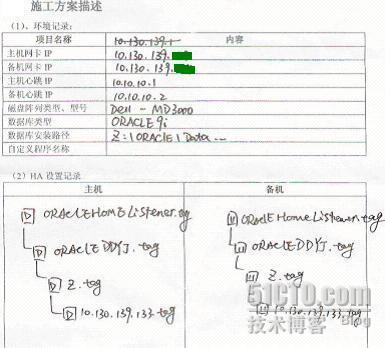 施工方案描述
（1）、环境记录：
项目名称 内容
10.130.139.1
主机网卡 IP 10.130.139.
备机网卡 IP 10.130.139.
主机心跳 IP 10.10.10.1
备机心跳 IP 10.10.10.2
磁盘阵列类型、型号 Dell - MD3000
数据库类型 ORACLE9i
数据库安装路径 Z:\ORACLE\Data...
自定义程序名称
（2）HA 设置记录
主机 备机
ORACLEHOMEListener.tag ORACLEHomeListener.tag
ORACLEDDYJ.tag ORACLEDDYJ.tag
Z.tag Z.tag
10.130.139.133.tag 10.130.139.133.tag
51CTO.com
技术博客 Blog